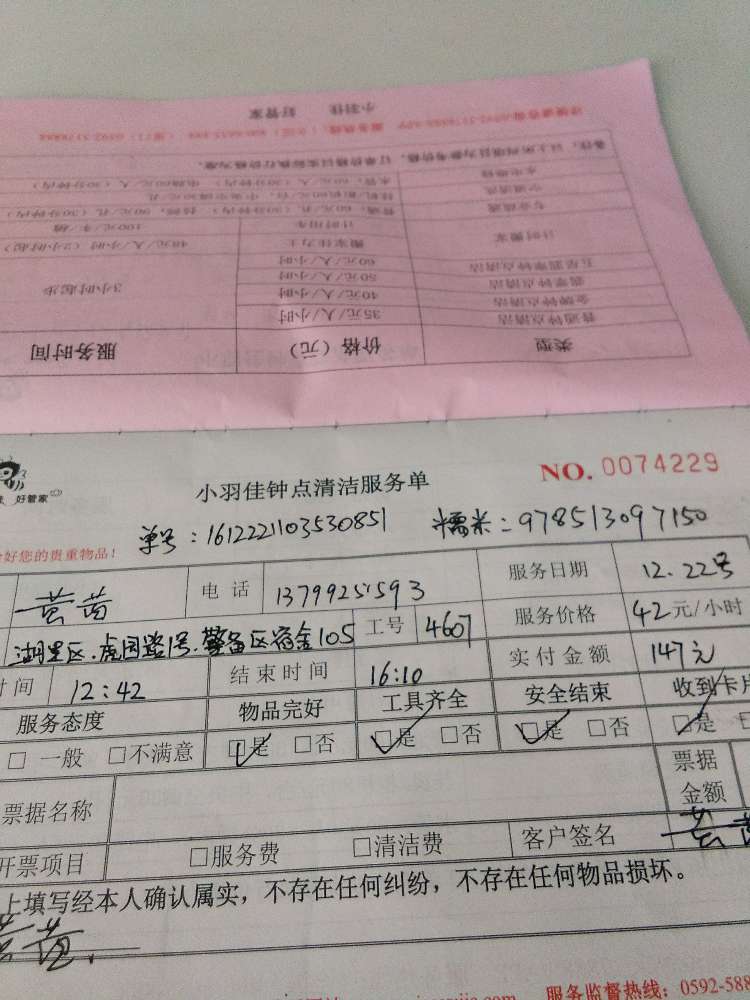 小羽佳 好管家
备注：以上所列项目为参考价格，订单价格以实际执行价格为准。
计时搬家 搬家佳力士 48元/人/小时（2小时起）
计时用车 100元/车/趟
五星翡翠钟点清洁 60元/人/小时
翡翠钟点清洁 50元/人/小时
金牌钟点清洁 40元/人/小时
普通钟点清洁 35元/人/小时
3小时起步
类型 价格（元） 服务时间
好管家
小羽佳钟点清洁服务单
NO. 0074229
单号：1612221103530851 糯米：978513097150
好您的贵重物品！
电话 13799251593 服务日期 12.22号
湖里区.虎园路1号.警备区宿舍105 工号 4607 服务价格 42元/小时
时间 12:42 结束时间 16:10 实付金额 147元
服务态度 物品完好 工具齐全 安全结束 收到卡片
□一般 □不满意 □是 □否 □是 □否 □是 □否 □是
票据名称 票据金额
开票项目 □服务费 □清洁费 客户签名
上填写经本人确认属实，不存在任何纠纷，不存在任何物品损坏。
服务监督热线：0592-588